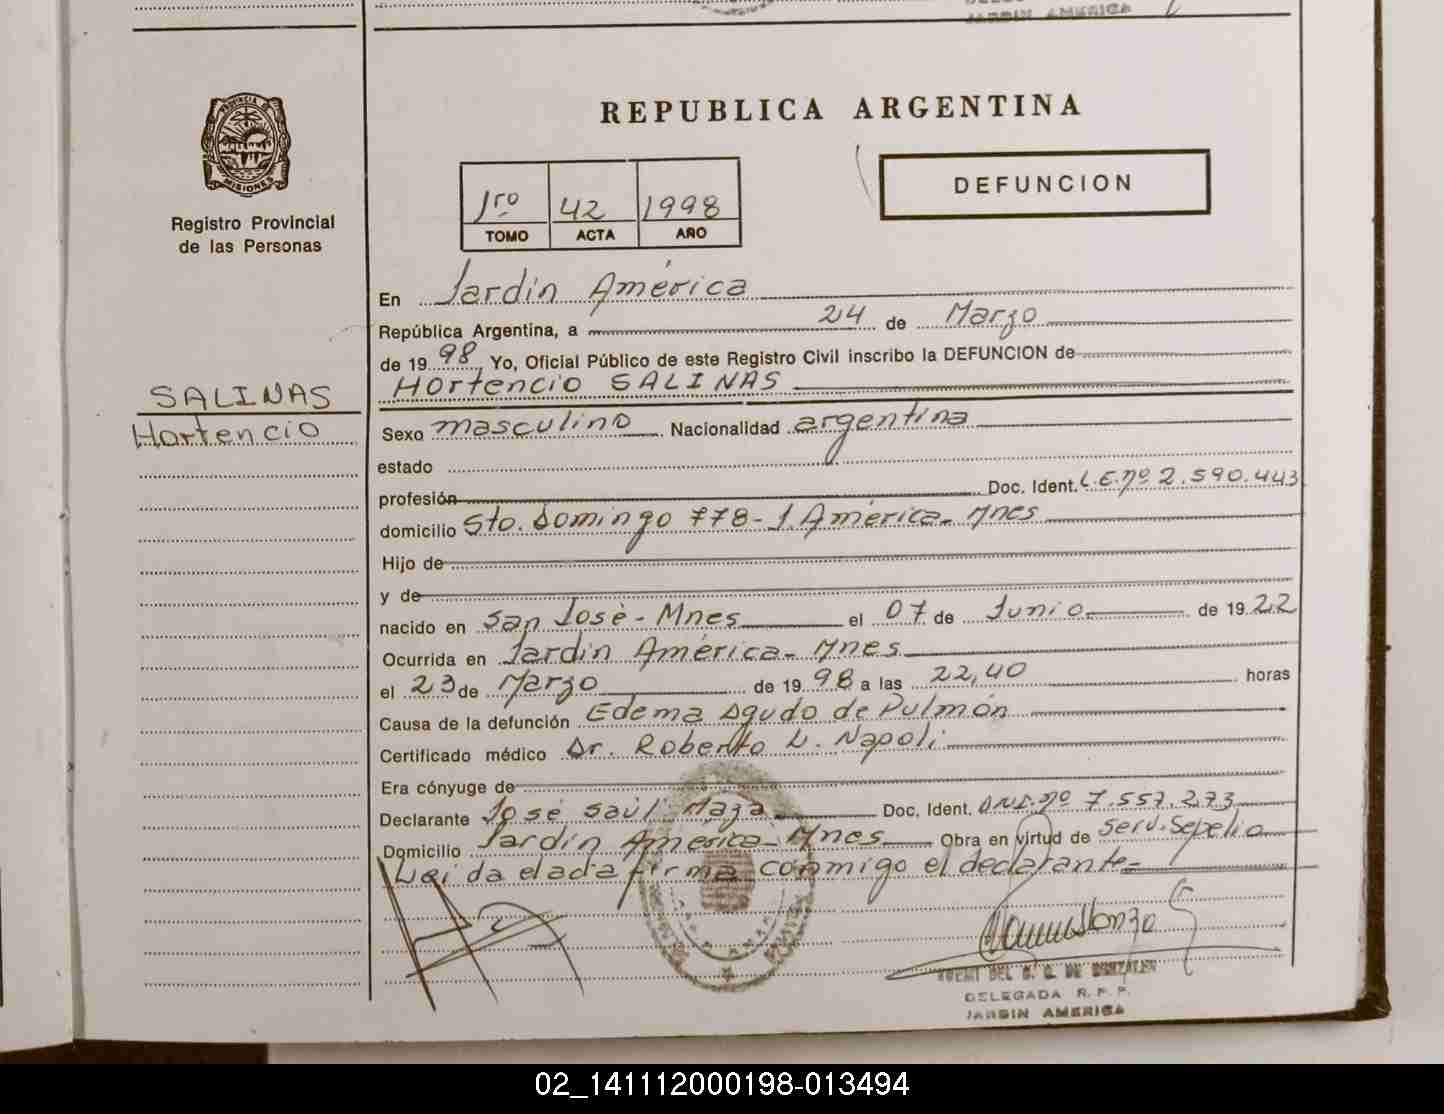 JARDIN AMERICA
PROVINCIA DE
MISIONES
Registro Provincial
de las Personas
REPUBLICA ARGENTINA
DEFUNCION
1ro 42 1998
TOMO ACTA AÑO
En Jardín América
República Argentina, a 24 de Marzo
de 19 98 Yo, Oficial Público de este Registro Civil inscribo la DEFUNCION de
Hortencio SALINAS
SALINAS
Hortencio
Sexo masculino Nacionalidad argentina
estado
profesión Doc. Ident. L.E.nº 2.590.443
domicilio Sto. Domingo 778-J.América-Mnes
Hijo de
y de
nacido en San José-Mnes el 07 de Junio de 19 22
Ocurrida en Jardín América-Mnes
el 23 de Marzo de 19 98 a las 22,40 horas
Causa de la defunción Edema Agudo de Pulmón
Certificado médico Dr. Roberto L. Napoli
Era cónyuge de
Declarante José Saúl Maza Doc. Ident. DNI.nº 7.557.273
Domicilio Jardín América-Mnes Obra en virtud de Serv.Sepelio
Leida el acta firma conmigo el declarante-
DELEGADA R.P.P.
JARDIN AMERICA
02_141112000198-013494